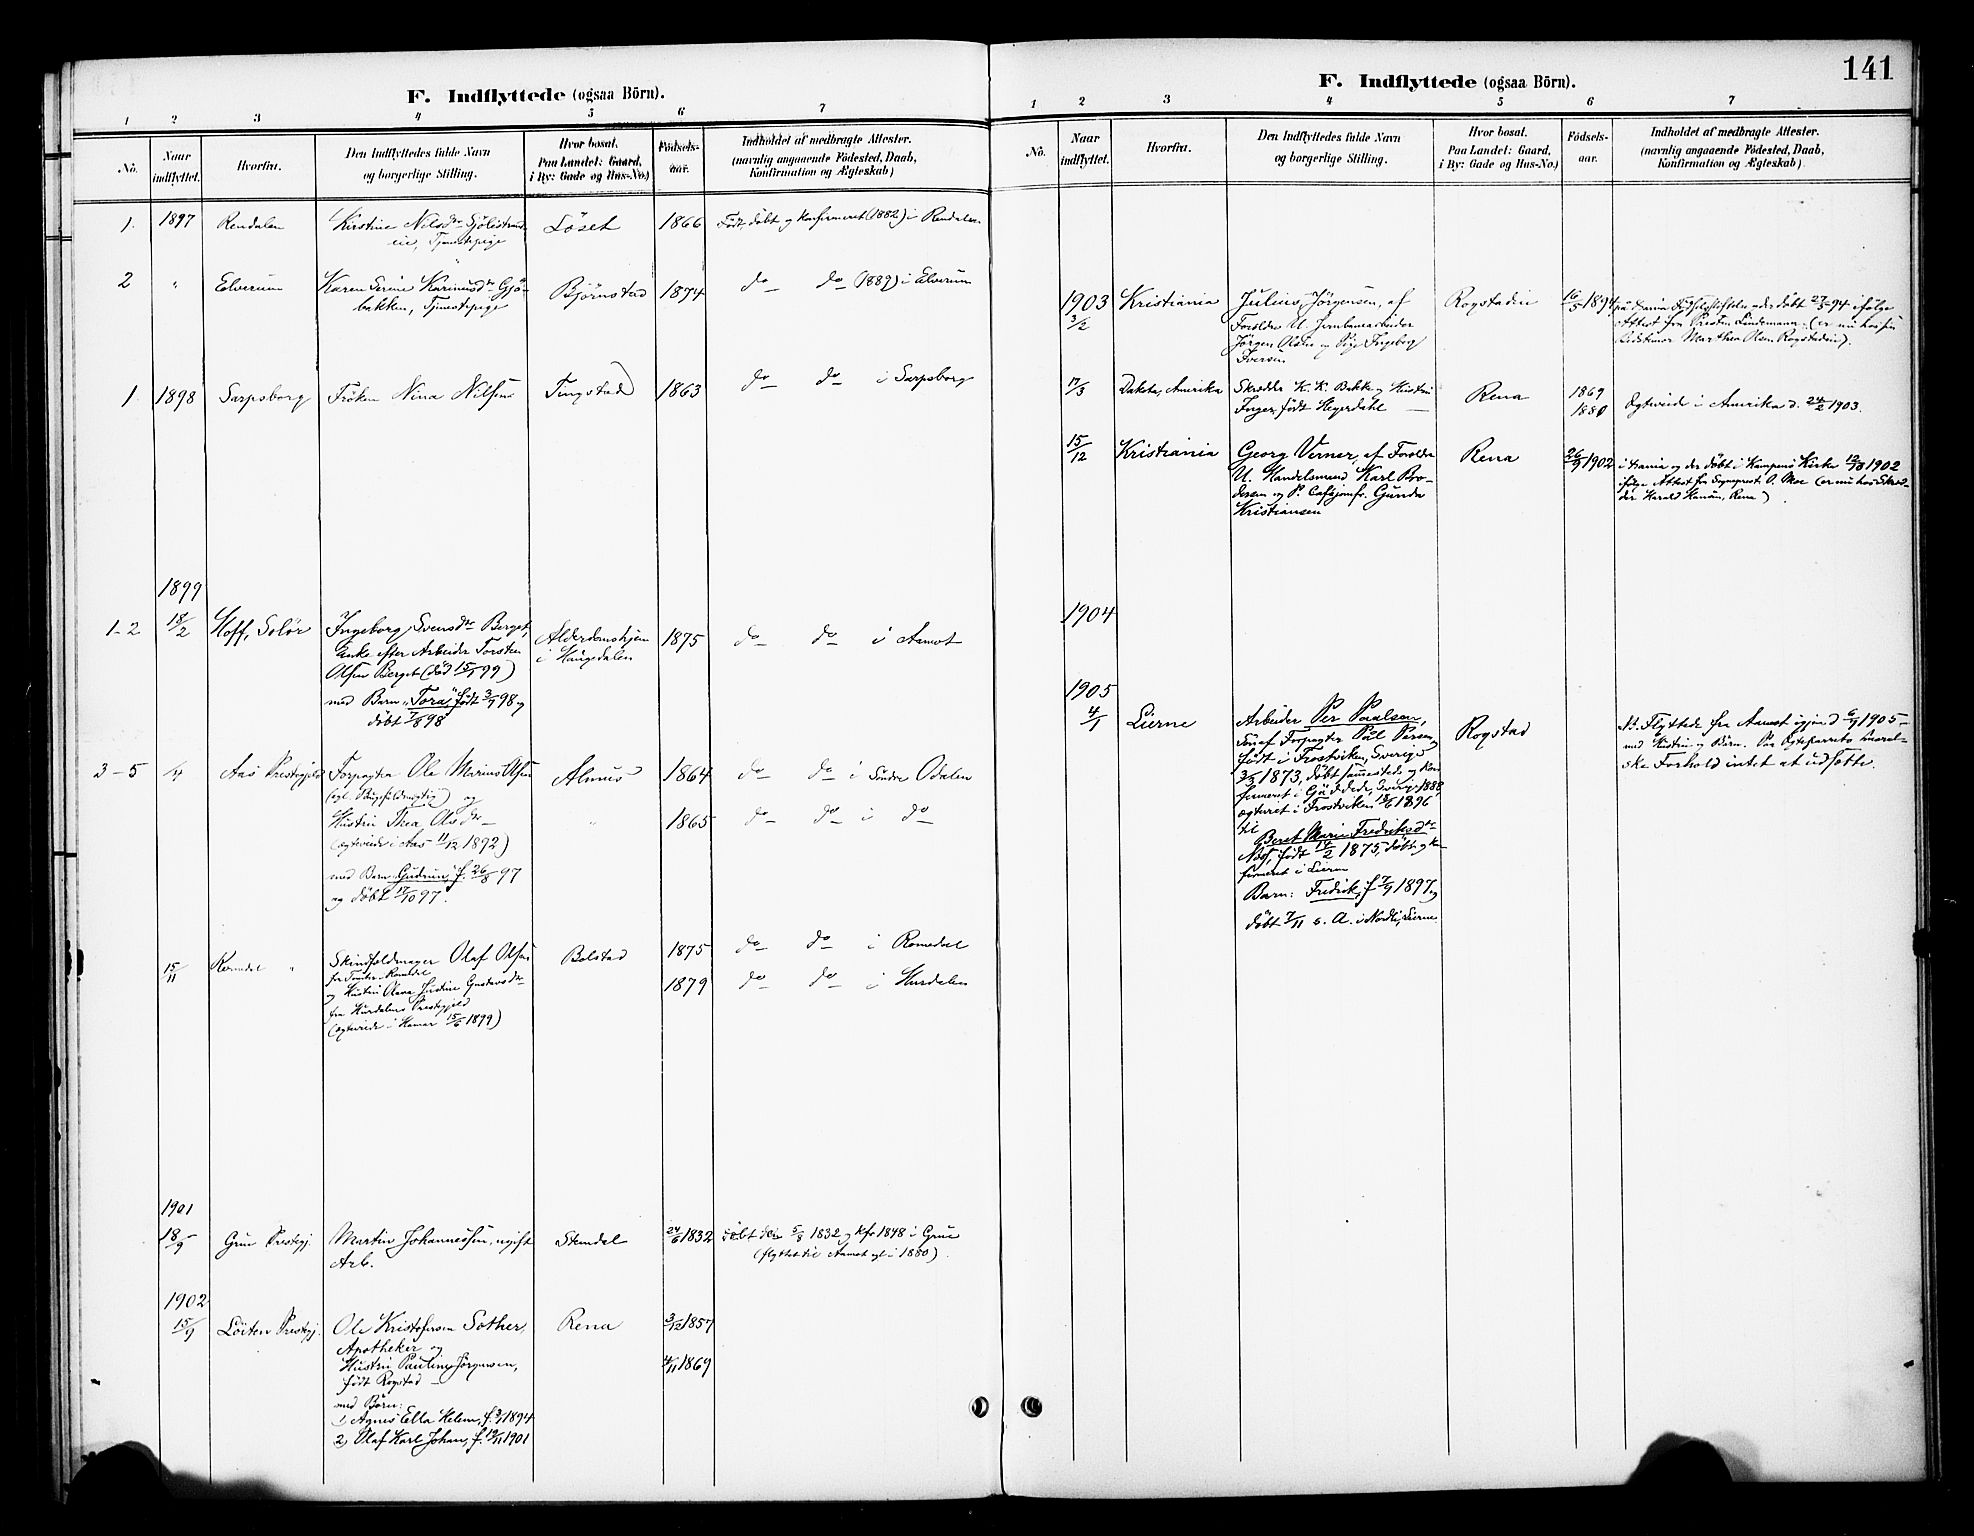 F. Indflyttede (ogsaa Börn).
1 2 3 4 5 6 7
No.
Naar indflyttet.
Hvorfra.
Den Indflyttedes fulde Navn
og borgerlige Stilling.
Hvor bosat.
Paa Landet: Gaard,
i By: Gade og Hus-No.)
Födsels-
aar.
Indholdet af medbragte Attester.
(navnlig angaaende Födested, Daab,
Konfirmation og Ægteskab)
1. 1897 Rendalen Kirstine Nilsdtr Løset 1866 Født, døbt og konfirmeret (1882) i Rendalen
Tjenestepige
2 " Elverum Karen Serine Karinusdtr Gjö- Bjørnstad 1874 do do (1889) i Elverum
bakken, Tjenestepige
1 1898 Sarpsborg Frøken Nina Nilsen Tingstad 1863 do do i Sarpsborg
1899
1-2 18/2 Hoff, Solør Ingeborg Svensdtr Berget, Alderdomshjem 1875 do do i Aamot
Enke efter Arbeider Torsten i Haugedalen
Olsen Berget (død 15/1 99)
med Barn "Tora" født 3/7 98 og
døbt 7/8 98
3-5 1/4 Aas Prestegjeld Forpagter Ole Marius Olsen Alme 1864 do do i Søndre Odalen
og
Hustru Thea Olsdtr " 1865 do do i do
(ægteviede i Aas 11/12 1892)
med Barn Gudrun, f. 26/8 97
og døbt 17/10 97.
15/11 Romedal " Skindfeldmager Olaf Olsen Bolstad 1875 do do i Romedal
fra Romedal
og Hustru Olava Justine Gustavsdtr 1879 do do i Hurdalen
fra Hurdalens Prestegjeld
(ægteviede i Hamar 15/6 1899)
1901
18/9 Grue Prestegj. Martin Johannessen, ugift Stendal 24/6 1832 døbt den 5/8 1832 og kfr 1848 i Grue
Arb. (flyttet til Aamot i 1880).
1902
15/9 Löiten Prestegj. Ole Kristofersen Sother, Rena 3/12 1857
Apotheker og
Hustru Pauline Jörgensen, 4/11 1869
født Rogstad
med Börn:
1) Agnes Ella Helene, f. 3/1 1894
2) Olaf Karl Johan, f. 19/11 1901
F. Indflyttede (ogsaa Börn).
141
1 2 3 4 5 6 7
No.
Naar
indflyttet.
Hvorfra.
Den Indflyttedes fulde Navn
og borgerlige Stilling.
Hvor bosat.
Paa Landet: Gaard,
i By: Gade og Hus-No.)
Födsels-
aar.
Indholdet af medbragte Attester.
(navnlig angaaende Födested, Daab,
Konfirmation og Ægteskab)
1903 Kristiania Julius Jörgensen, af Rogstadin 16/5 1894 på Kr.ania Fødselsstiftelse og der døbt 27/5 94 ifølge
3/2 Foreldre U. Jernbanearbeider Attest fra Presten Lindemann. (er nu hos sin
Jörgen Olsen og Pige Ingeborg Bedstemor Marthea Olsen Rogstadin).
Iversen
17/3 Dakota, Amerika Skrædder K. K. Bakke og Hustru Rena 1869
Inger, født Heyerdahl 1880 Ægteviede i Amerika d. 24/2 1903.
15/12 Kristiania Georg Verner, af Foreldre Rena 26/9 1902 i Kr.ania og der døbt i Kampens Kirke 12/10 1902
U. Handelsmand Karl Bro- ifølge Attest fra Sogneprest O. Moe (er nu hos Skræd-
dersen og P. Cafejomfr. Gunda der Harald Hansen, Rena)
Kristiansen
1904
1905
4/1 Lierne Arbeider Per Paalsen, Rogstad Nb. Flyttede fra Aamot igjen d 6/9 1905
Søn af Forpagter Pål Persen, med Hustru og Børn. Paa Ægteparrets moral-
født i Frostviken, Sverige ske Forhold intet at udsætte.
3/3 1873, døbt sammesteds og kon
firmeret i Gäddede, Sverige 1888,
ægteviet i Frostviken 18/6 1896
til
Beret Marie Fredriksdtr
født 14/2 1875, døbt og kon
firmeret i Lierne
Barn: Fredrik, f 7/9 1897 og
døbt 7/11 s. A. i Nordli, Lierne